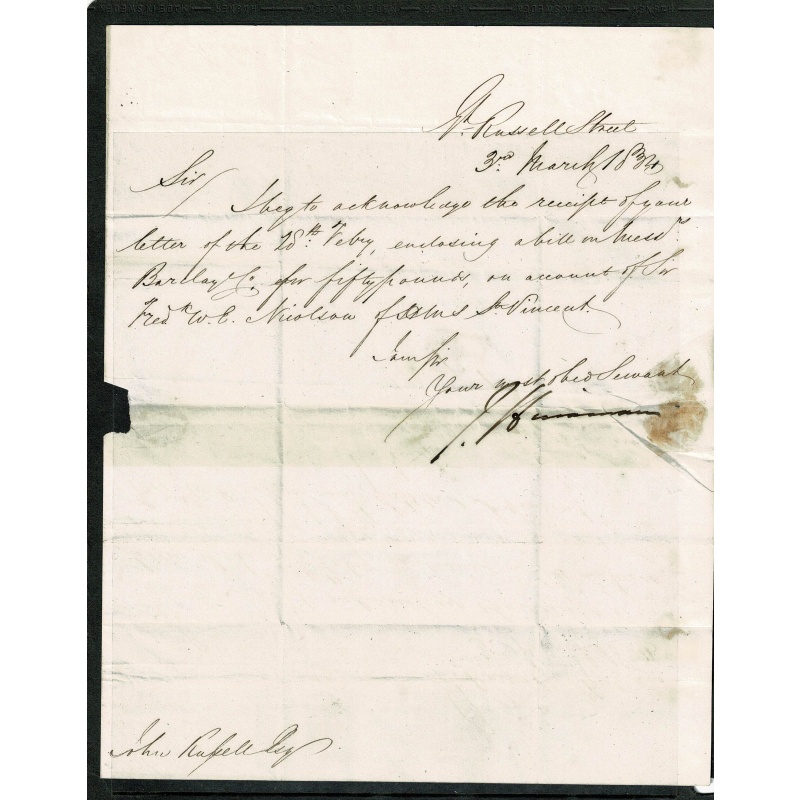 Gt. Russell Street
3rd March 1834
Sir
I beg to acknowledge the receipt of your
letter of the 28th Febry, enclosing a bill on Messrs
Barclay & Co, for fifty pounds, on account of Sir
Fredk W. E. Nicolson of HMS St Vincent.
I am Sir
Your most obed Servant
John Russell Esq